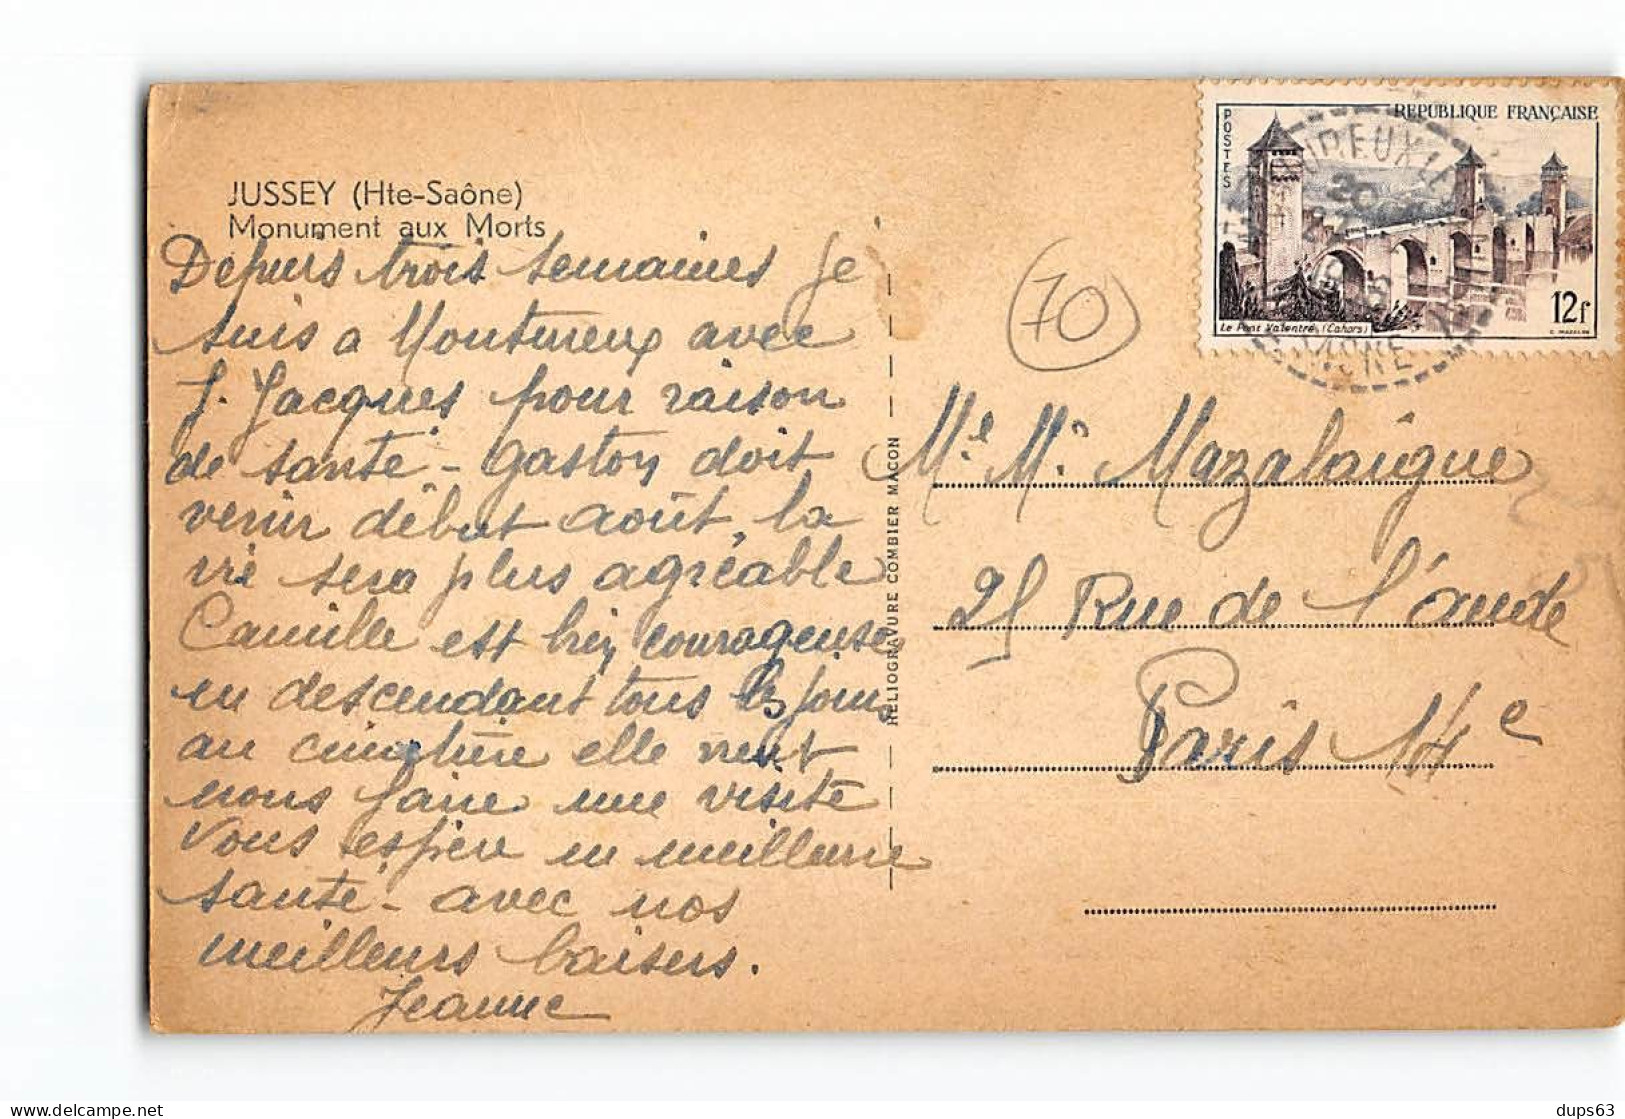 JUSSEY (Hte-Saône)
Monument aux Morts
Depuis trois semaines je
suis a Montureux avec
J. Jacques pour raison
de santé - Gaston doit
venir début août, la
vie sera plus agréable
Camille est bien courageuse
en descendant tous les jours
au cimetière elle vient
nous faire une visite
Vous espère en meilleure
santé - avec nos
meilleurs baisers.
Jeanne
HELIOGRAVURE COMBIER MACON
70
POSTES
REPUBLIQUE FRANÇAISE
Le Pont Valentré (Cahors)
12f
Me M. Mazalaigue
25 Rue de l'aude
Paris 14e
delcampe.net
dups63